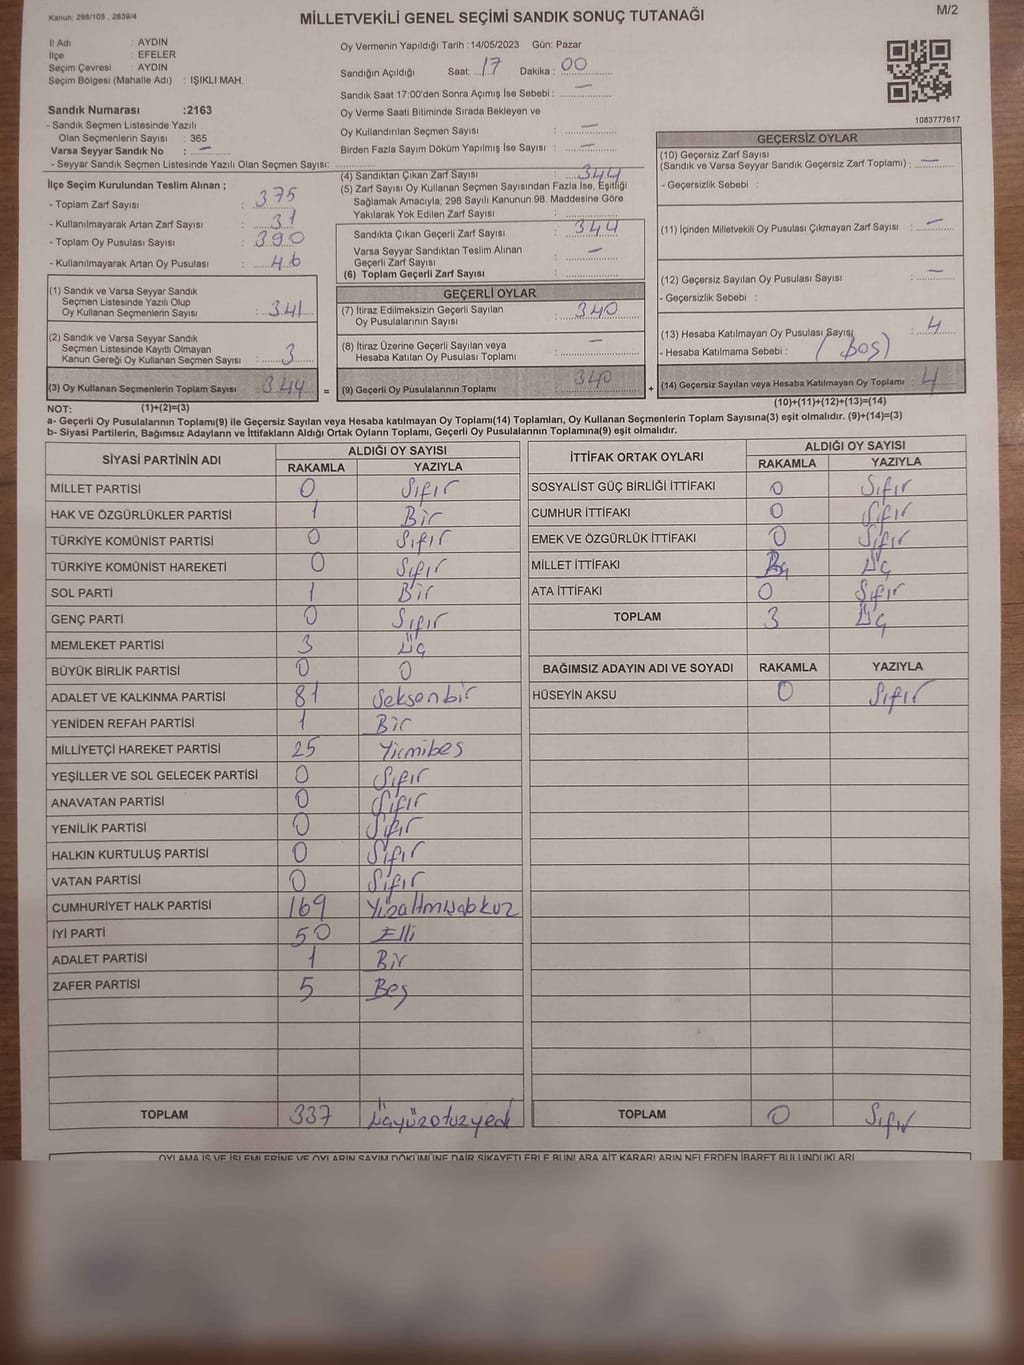 Kanun: 298/105 , 2839/4
MİLLETVEKİLİ GENEL SEÇİMİ SANDIK SONUÇ TUTANAĞI
M/2
İl Adı : AYDIN
İlçe : EFELER
Seçim Çevresi : AYDIN
Seçim Bölgesi (Mahalle Adı) : IŞIKLI MAH.
Sandık Numarası :2163
- Sandık Seçmen Listesinde Yazılı
Olan Seçmenlerin Sayısı : 365
Varsa Seyyar Sandık No : —
- Seyyar Sandık Seçmen Listesinde Yazılı Olan Seçmen Sayısı:
Oy Vermenin Yapıldığı Tarih :14/05/2023 Gün: Pazar
Sandığın Açıldığı Saat: 17 Dakika : 00
Sandık Saat 17:00'den Sonra Açımış İse Sebebi : —
Oy Verme Saati Bitiminde Sırada Bekleyen ve
Oy Kullandırılan Seçmen Sayısı : —
Birden Fazla Sayım Döküm Yapılmış İse Sayısı : —
1083777617
İlçe Seçim Kurulundan Teslim Alınan ;
- Toplam Zarf Sayısı : 375
- Kullanılmayarak Artan Zarf Sayısı : 31
- Toplam Oy Pusulası Sayısı : 390
- Kullanılmayarak Artan Oy Pusulası : 46
(1) Sandık ve Varsa Seyyar Sandık
Seçmen Listesinde Yazılı Olup
Oy Kullanan Seçmenlerin Sayısı : 341
(2) Sandık ve Varsa Seyyar Sandık
Seçmen Listesinde Kayıtlı Olmayan
Kanun Gereği Oy Kullanan Seçmen Sayısı : 3
(3) Oy Kullanan Seçmenlerin Toplam Sayısı : 344 =
(4) Sandıktan Çıkan Zarf Sayısı : 344
(5) Zarf Sayısı Oy Kullanan Seçmen Sayısından Fazla İse, Eşitliği
Sağlamak Amacıyla; 298 Sayılı Kanunun 98. Maddesine Göre
Yakılarak Yok Edilen Zarf Sayısı :
Sandıkta Çıkan Geçerli Zarf Sayısı : 344
Varsa Seyyar Sandıktan Teslim Alınan
Geçerli Zarf Sayısı : —
(6) Toplam Geçerli Zarf Sayısı :
GEÇERLİ OYLAR
(7) İtiraz Edilmeksizin Geçerli Sayılan
Oy Pusulalarının Sayısı : 340
(8) İtiraz Üzerine Geçerli Sayılan veya
Hesaba Katılan Oy Pusulası Toplamı : —
(9) Geçerli Oy Pusulalarının Toplamı : 340 +
GEÇERSİZ OYLAR
(10) Geçersiz Zarf Sayısı
(Sandık ve Varsa Seyyar Sandık Geçersiz Zarf Toplamı) : —
- Geçersizlik Sebebi :
(11) İçinden Milletvekili Oy Pusulası Çıkmayan Zarf Sayısı : —
(12) Geçersiz Sayılan Oy Pusulası Sayısı : —
- Geçersizlik Sebebi :
(13) Hesaba Katılmayan Oy Pusulası Sayısı : 4
- Hesaba Katılmama Sebebi : (Boş)
(14) Geçersiz Sayılan veya Hesaba Katılmayan Oy Toplamı : 4
NOT: (1)+(2)=(3)
(10)+(11)+(12)+(13)=(14)
a- Geçerli Oy Pusulalarının Toplamı(9) ile Geçersiz Sayılan veya Hesaba katılmayan Oy Toplamı(14) Toplamları, Oy Kullanan Seçmenlerin Toplam Sayısına(3) eşit olmalıdır. (9)+(14)=(3)
b- Siyasi Partilerin, Bağımsız Adayların ve İttifakların Aldığı Ortak Oyların Toplamı, Geçerli Oy Pusulalarının Toplamına(9) eşit olmalıdır.
SİYASİ PARTİNİN ADI ALDIĞI OY SAYISI
RAKAMLA YAZIYLA
MİLLET PARTİSİ 0 Sıfır
HAK VE ÖZGÜRLÜKLER PARTİSİ 1 Bir
TÜRKİYE KOMÜNİST PARTİSİ 0 Sıfır
TÜRKİYE KOMÜNİST HAREKETİ 0 Sıfır
SOL PARTİ 1 Bir
GENÇ PARTİ 0 Sıfır
MEMLEKET PARTİSİ 3 Üç
BÜYÜK BİRLİK PARTİSİ 0 0
ADALET VE KALKINMA PARTİSİ 81 Seksenbir
YENİDEN REFAH PARTİSİ 1 Bir
MİLLİYETÇİ HAREKET PARTİSİ 25 Yirmibeş
YEŞİLLER VE SOL GELECEK PARTİSİ 0 Sıfır
ANAVATAN PARTİSİ 0 Sıfır
YENİLİK PARTİSİ 0 Sıfır
HALKIN KURTULUŞ PARTİSİ 0 Sıfır
VATAN PARTİSİ 0 Sıfır
CUMHURİYET HALK PARTİSİ 169
İYİ PARTİ 50 Elli
ADALET PARTİSİ 1 Bir
ZAFER PARTİSİ 5 Beş
TOPLAM 337 Üçyüzotuzyedi
İTTİFAK ORTAK OYLARI ALDIĞI OY SAYISI
RAKAMLA YAZIYLA
SOSYALİST GÜÇ BİRLİĞİ İTTİFAKI 0 Sıfır
CUMHUR İTTİFAKI 0 Sıfır
EMEK VE ÖZGÜRLÜK İTTİFAKI 0 Sıfır
MİLLET İTTİFAKI Üç
ATA İTTİFAKI 0 Sıfır
TOPLAM 3 Üç
BAĞIMSIZ ADAYIN ADI VE SOYADI RAKAMLA YAZIYLA
HÜSEYİN AKSU 0 Sıfır
TOPLAM 0 Sıfır
OYLAMA İŞ VE İŞLEMLERİNE VE OYLARIN SAYIM DÖKÜMÜNE DAİR ŞİKAYETLERLE BUNLARA AİT KARARLARIN NELERDEN İBARET BULUNDUKLARI